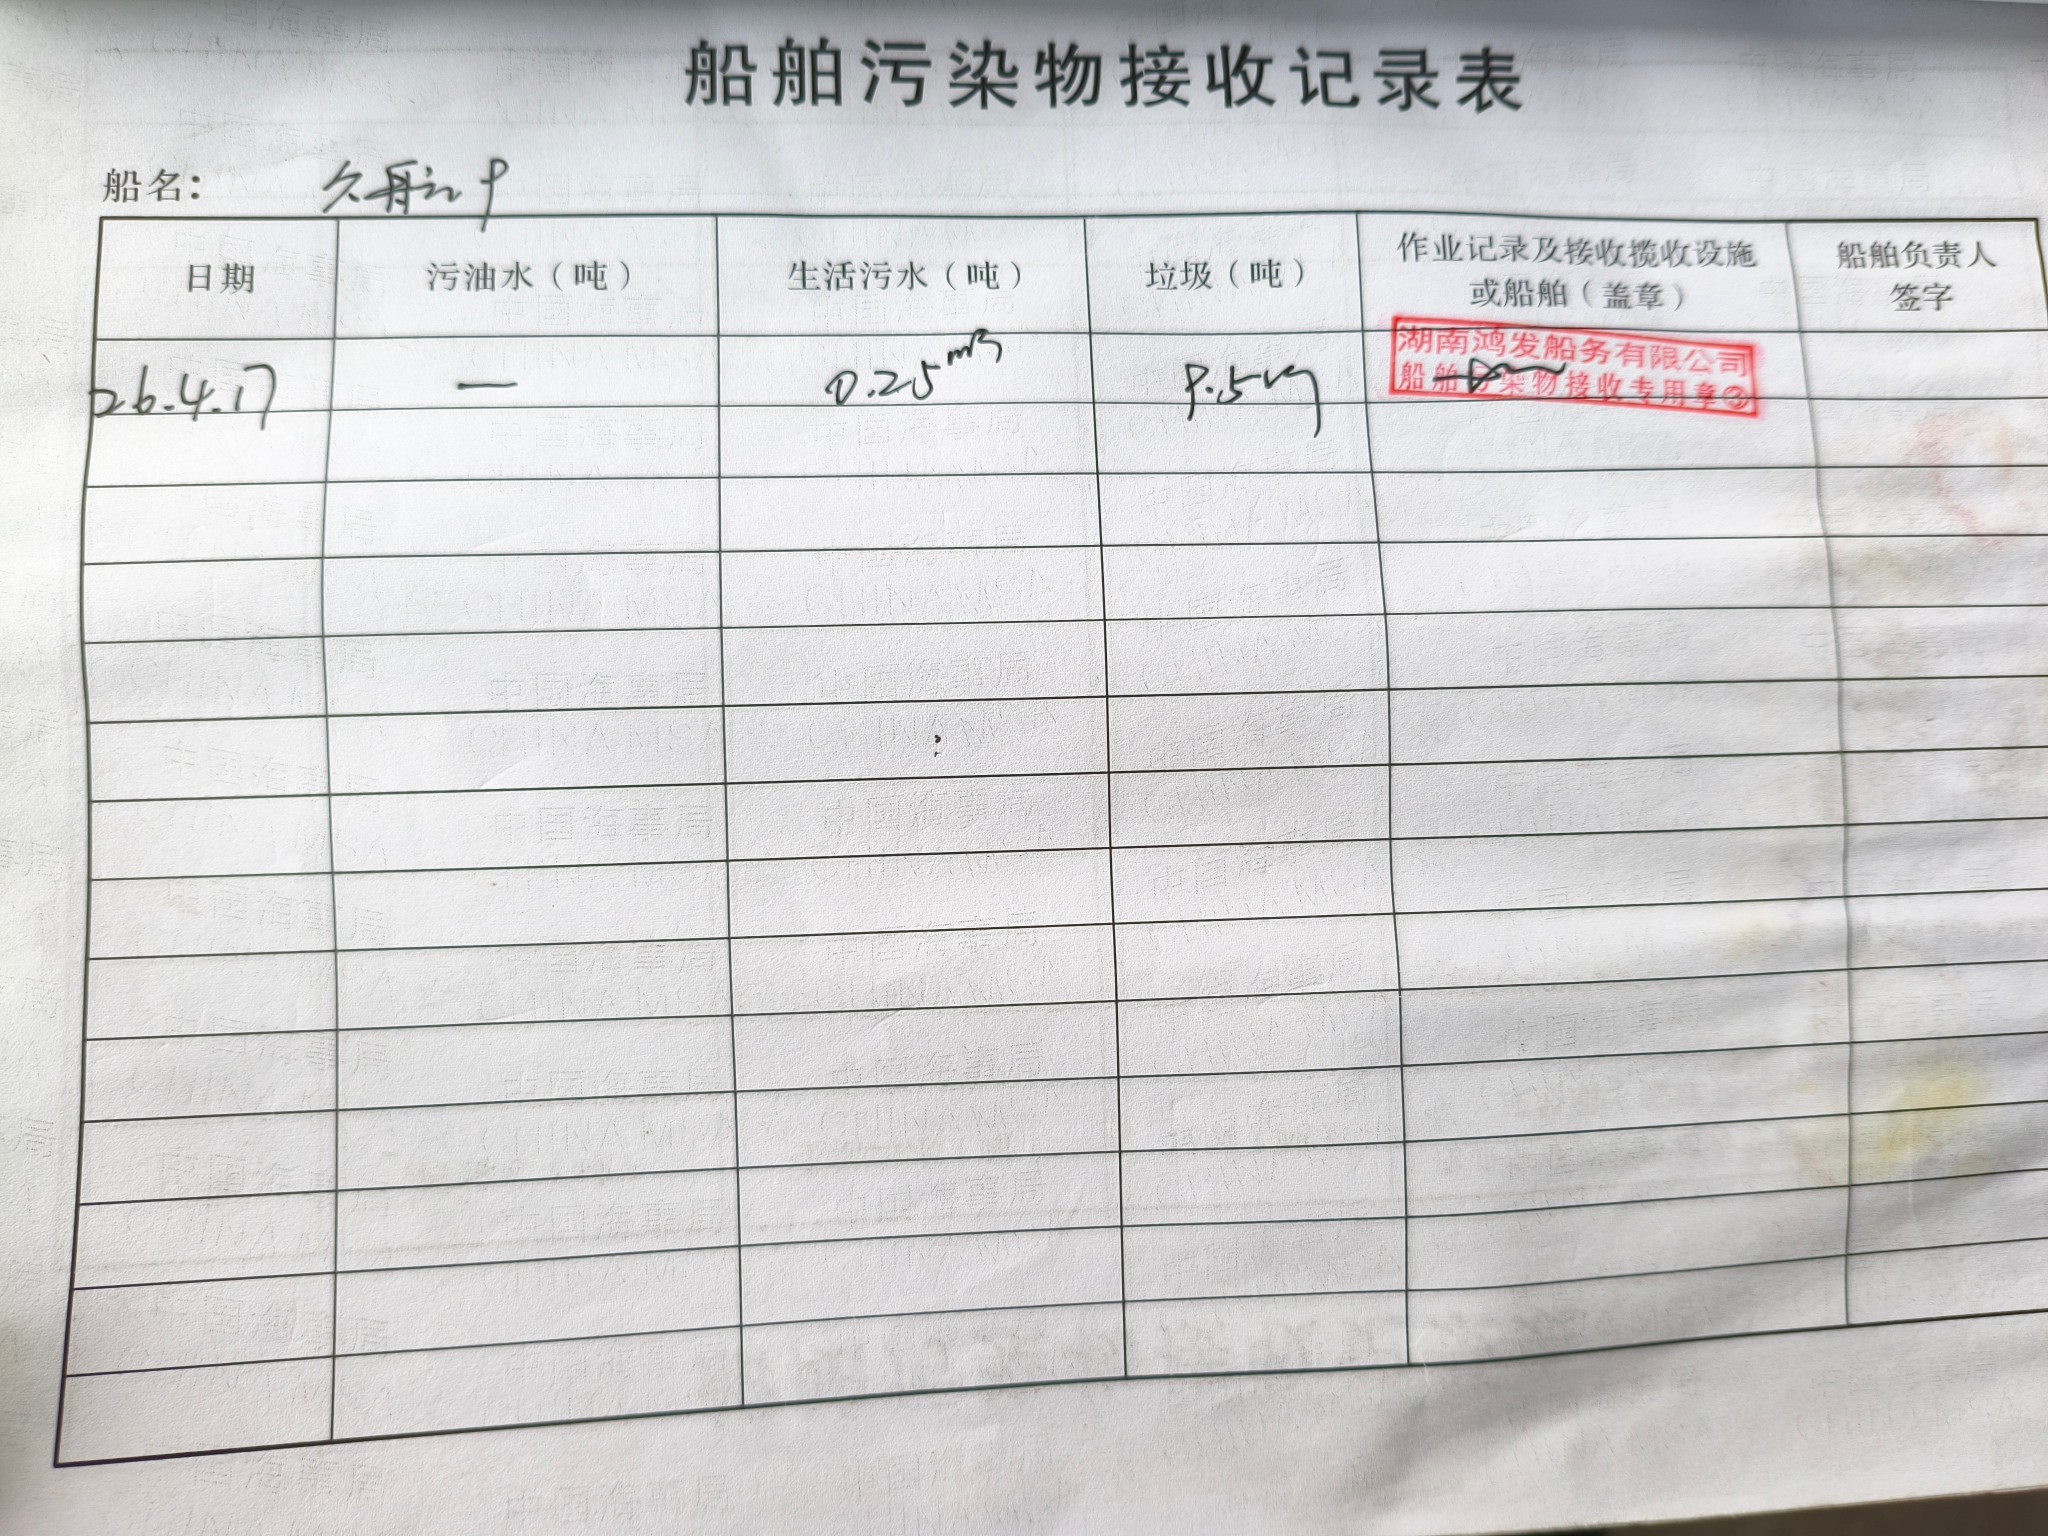 船舶污染物接收记录表
船名：
日期 污油水（吨） 生活污水（吨） 垃圾（吨） 作业记录及接收揽收设施或船舶（盖章） 船舶负责人签字
26.4.17 — 0.25m3 9.5kg
湖南鸿发船务有限公司
船舶污染物接收专用章③